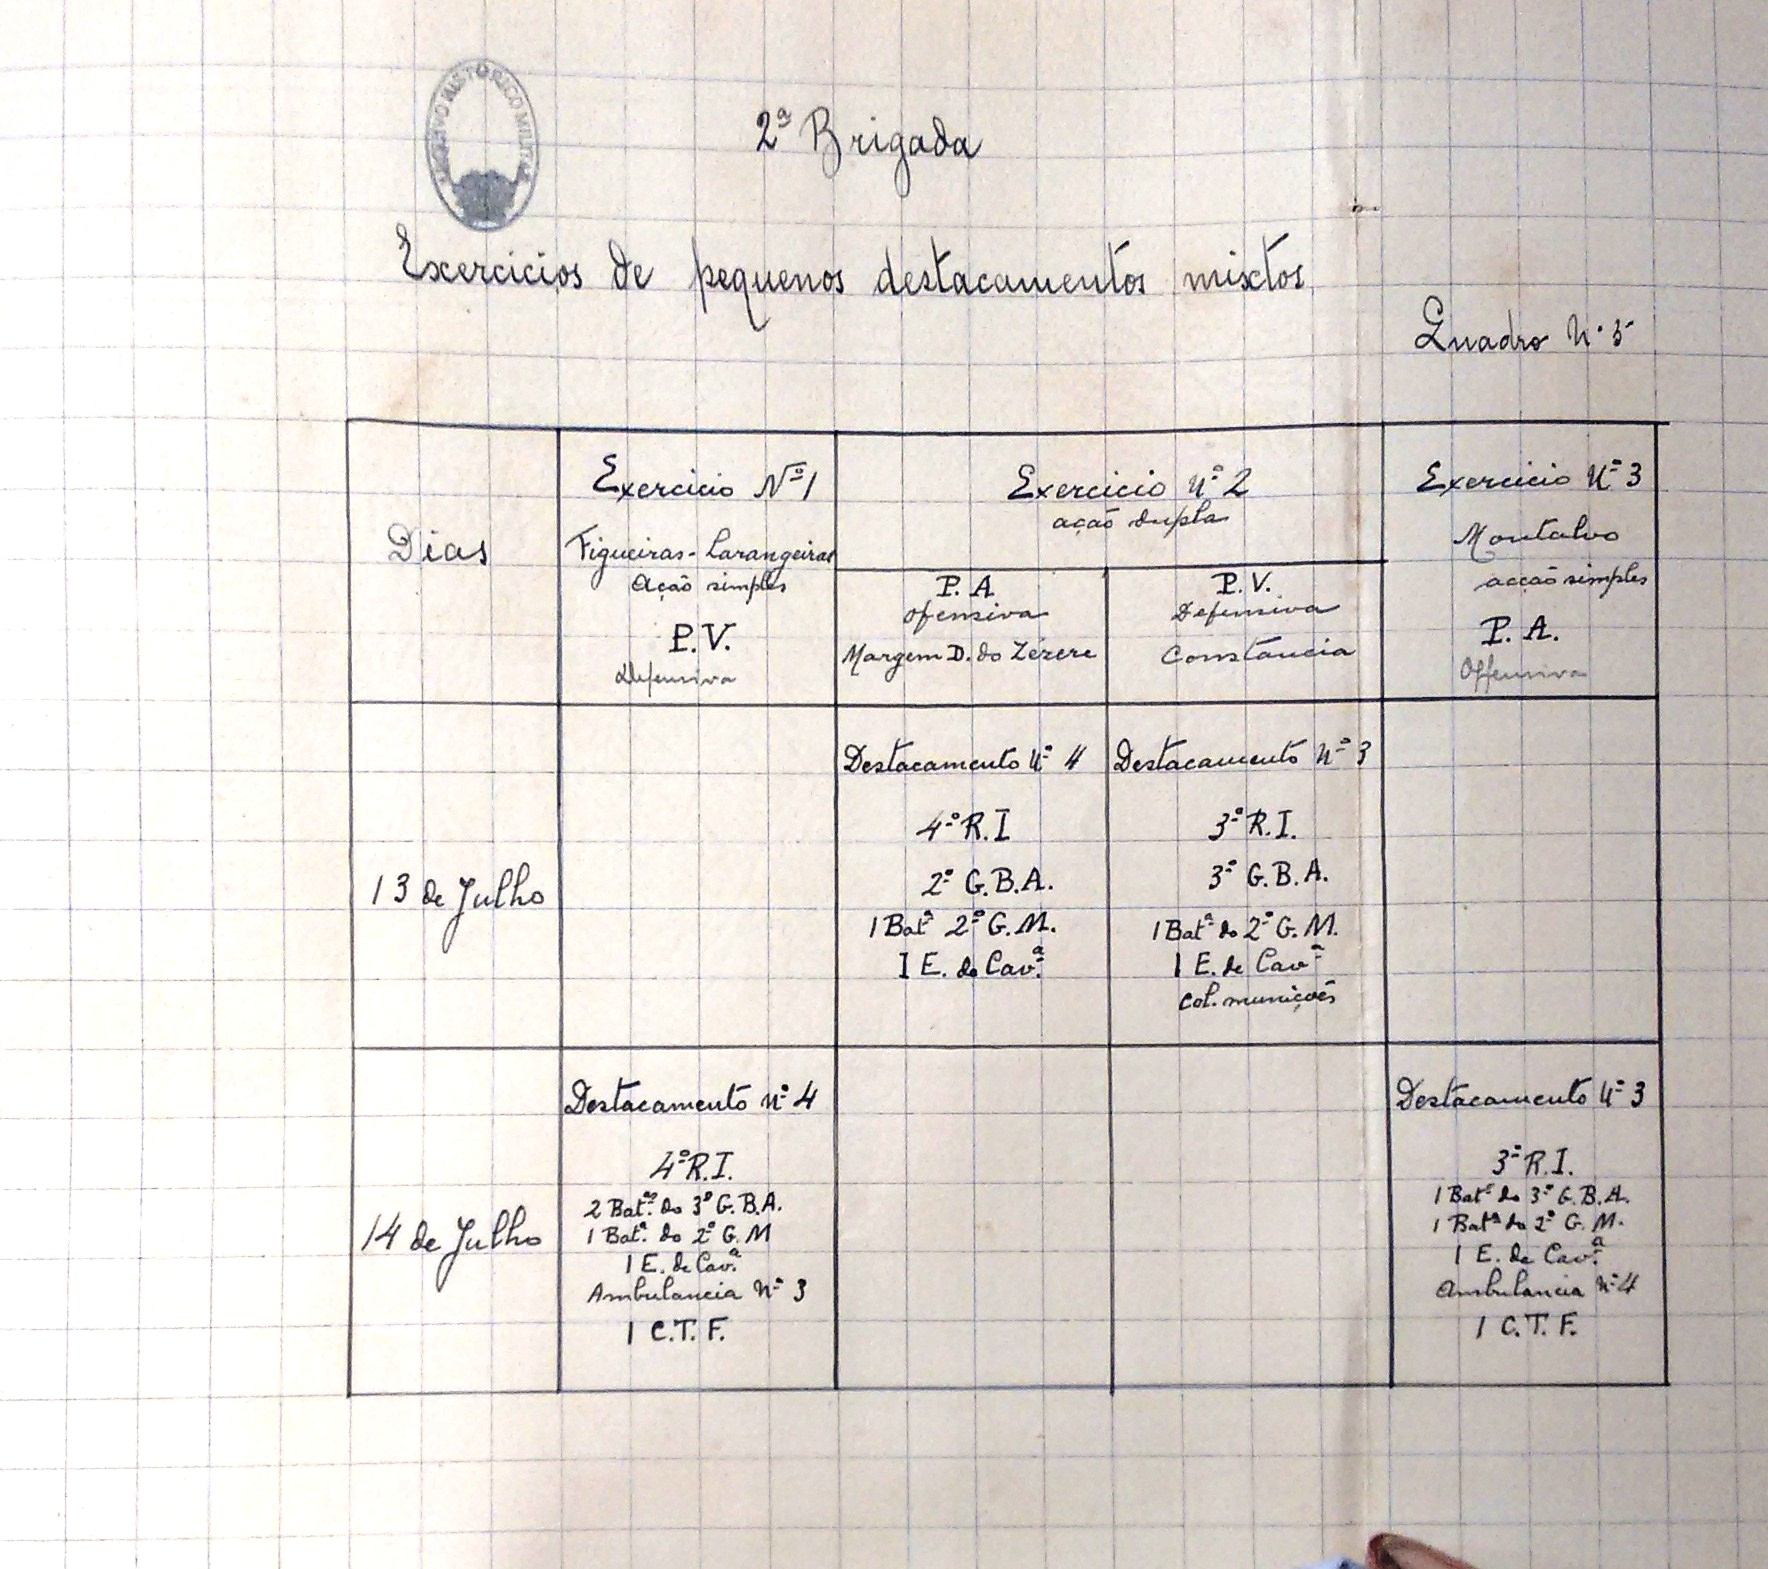 ARQUIVO HISTORICO MILITAR
2ª Brigada
Exercicios de pequenos destacamentos mixtos
Quadro Nº 5
Dias
Exercicio Nº 1
Figueiras - Larangeiras
Ação simples
P.V.
defensiva
Exercicio nº 2
ação dupla
P. A
ofensiva
Margem D. do Zézere
P. V.
Defensiva
Constancia
Exercicio Nº 3
Montalvo
acção simples
P. A.
Offensiva
13 de Julho
Destacamento Nº 4
4º R. I
2º G. B. A.
1 Batª 2º G. M.
1 E. de Cavª
Destacamento nº 3
3º R. I.
3º G. B. A.
1 Batª do 2º G. M.
1 E. de Cavª
Col. munições
14 de Julho
Destacamento nº 4
4º R. I.
2 Batªs do 3º G. B. A.
1 Batª do 2º G. M
1 E. de Cavª
Ambulancia nº 3
1 C. T. F.
Destacamento Nº 3
3º R. I.
1 Batª do 3º G. B. A.
1 Batª do 2º G. M.
1 E. de Cavª
Ambulancia nº 4
1 C. T. F.